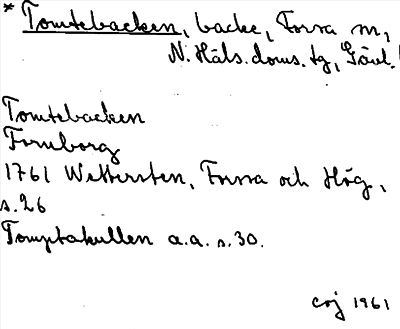 * Tomtebacken, backe, Forsa sn,
N. Häls. doms. tg, Gävl.
Tomtebacken
Fornborg
1761 Wettersten, Forssa och Hög,
s. 26
Tomptakullen a.a. s. 30.
1961